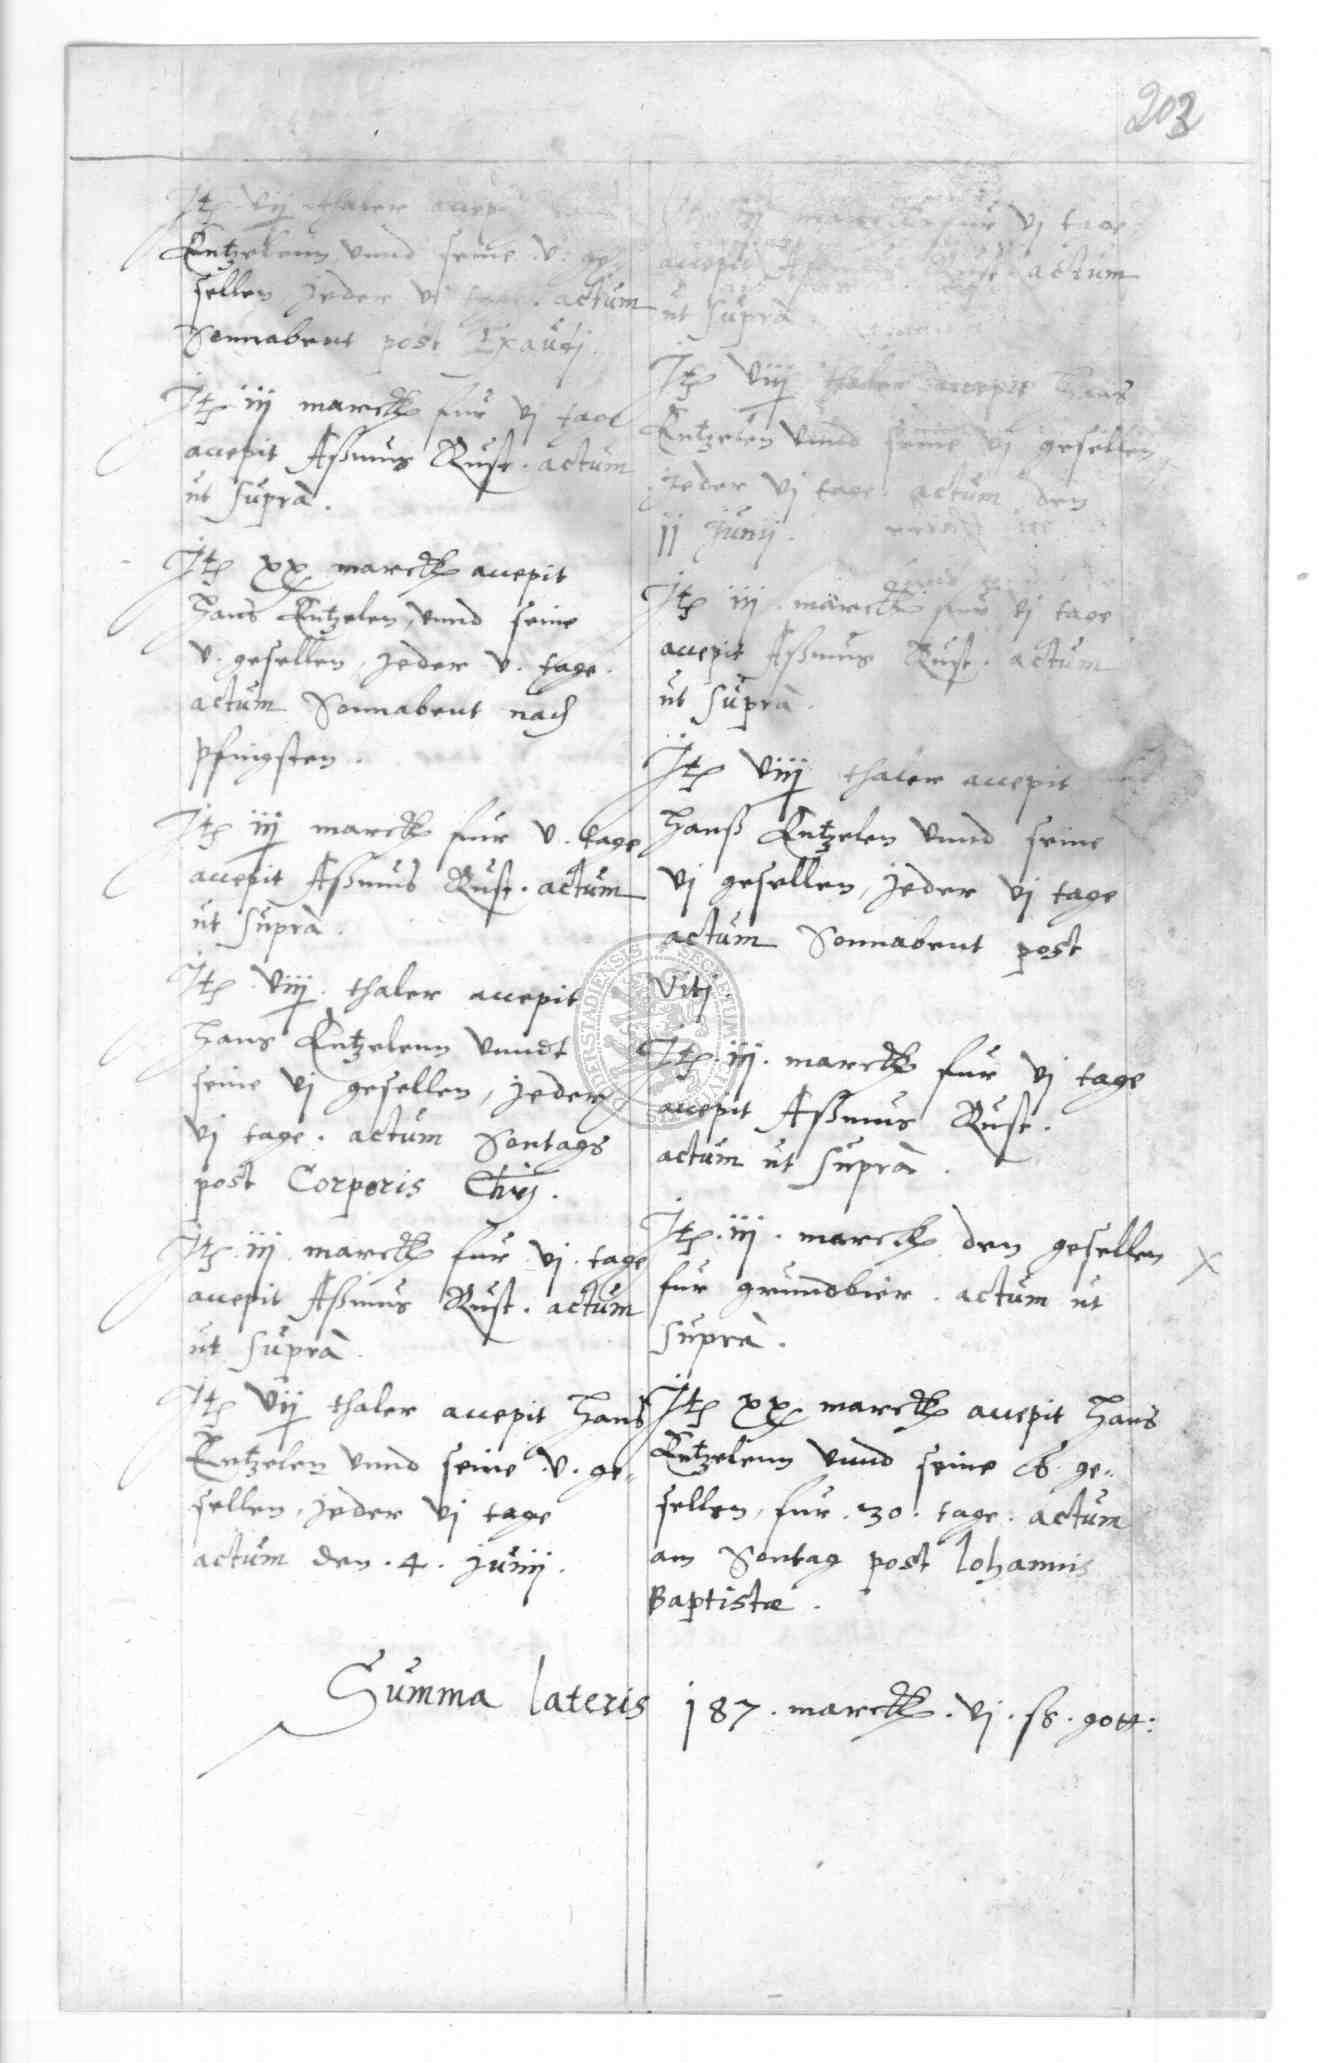 203
Jt. vij thaler accepit
Entzelenn vnnd seine .v. ge
sellen jeder vj tage. actum
Sonnabent post Exaudj.
Jt. iij marckk fur vj tage
accepit Aßmus Rust. actum
ut supra.
Jt. xx marckk accepit
Hans Entzelen, vnnd seine
v. gesellen, jeder v. tage.
actum Sonnabent nach
pfingsten.
Jt. iij marckk fur v. tage
accepit Aßmus Rust. actum
ut supra.
Jt. viij. thaler accepit
Hans Entzelenn vnndt
seine vj gesellen, jeder
vj tage. actum Sontags
post Corporis Chrj.
Jt. iij marckk fur vj. tage
accepit Aßmus Rust. actum
ut supra.
Jt. vij thaler accepit Hans
Entzelen vnnd seine .v. ge„
sellen, jeder vj tage
actum den .4. Junij.
marckk fur vj tage
accepit Rust. actum
ut supra.
Jt. viij thaler accepit Hans
Entzelen vnnd seine vj gesellen
jeder vj tage. actum den
jj Junij.
Jt. iij. marckk fur vj tage
accepit Aßmus Rust. actum
ut supra.
Jt. viij thaler accepit
Hanß Entzelen vnnd seine
vj gesellen, jeder vj tage
actum Sonnabent post
Vitj.
Jt. iij. marckk fur vj tage
accepit Aßmus Rust.
actum ut supra.
Jt. iij. marck den gesellen
fur grundbier. actum ut
supra.
Jt. xx marckk accepit Hans
Entzelenn vnnd seine 6. ge„
sellen, fur .30. tage. actum
am Sontag post Iohannis
Baptistæ.
Summa lateris j87. marckk. vj. ß. gott: